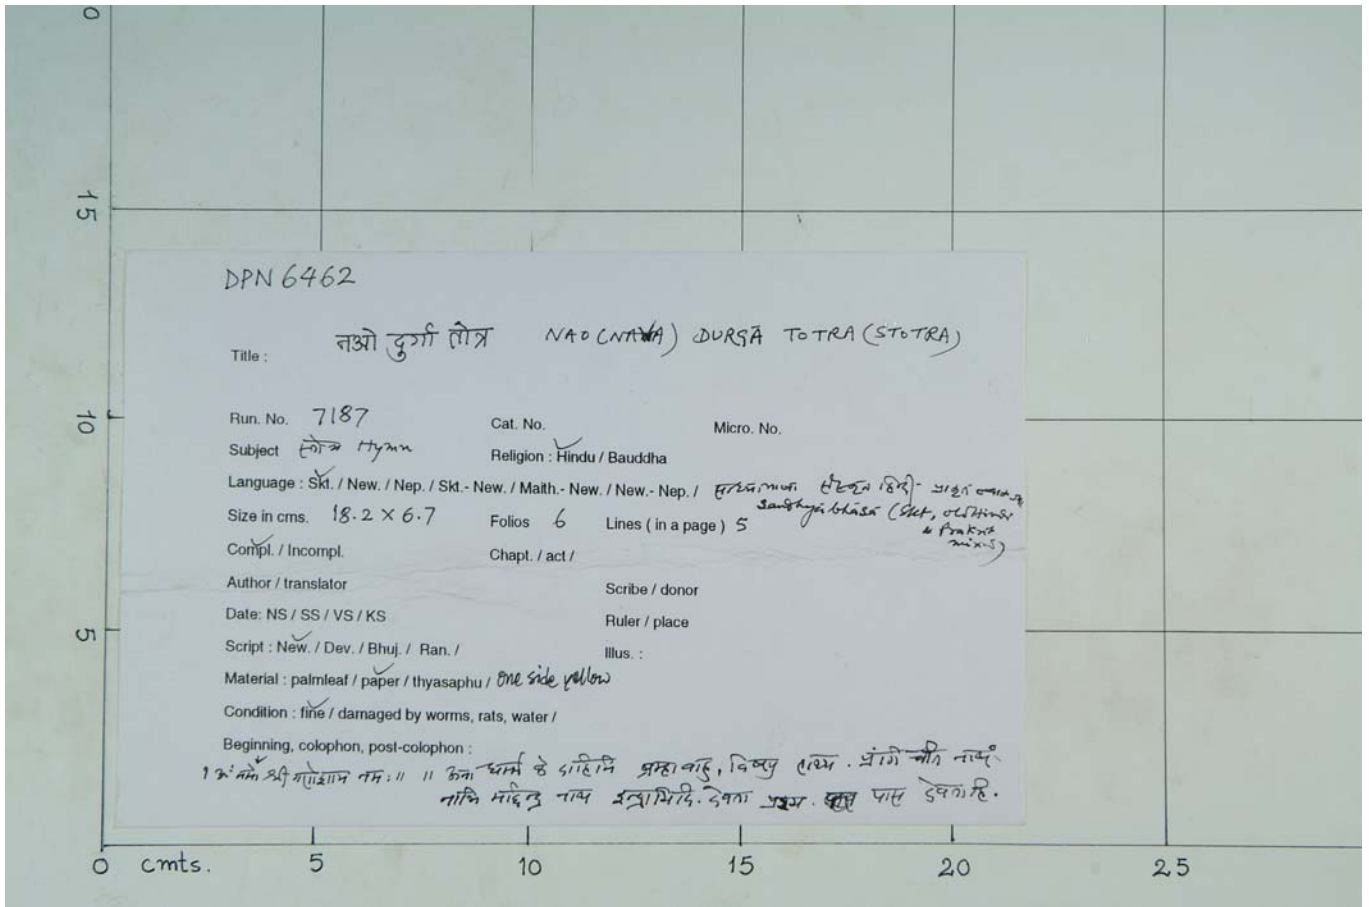 0
15
DPN 6462
Title : नओ दुर्गा तोत्र NAO (NAVA) DURGĀ TOTRA (STOTRA)
10
Run. No. 7187 Cat. No. Micro. No.
Subject स्तोत्र Hymn Religion : Hindu / Bauddha
Language : Skt. / New. / Nep. / Skt.- New. / Maith.- New. / New.- Nep. / संस्कृत हिन्दी - प्राकृत
Sandhyābhāsā (Skt, old Hindi & Prakrit mixed)
Size in cms. 18.2 × 6.7 Folios 6 Lines ( in a page ) 5
Compl. / Incompl. Chapt. / act /
Author / translator Scribe / donor
Date: NS / SS / VS / KS Ruler / place
5
Script : New. / Dev. / Bhuj. / Ran. / Illus. :
Material : palmleaf / paper / thyasaphu / one side yellow
Condition : fine / damaged by worms, rats, water /
Beginning, colophon, post-colophon :
श्री गणेशाय नमः ॥ ॥ के दाहिनि ब्रम्हा , विष्णु
नाभि देवता पास
0 cmts. 5 10 15 20 25